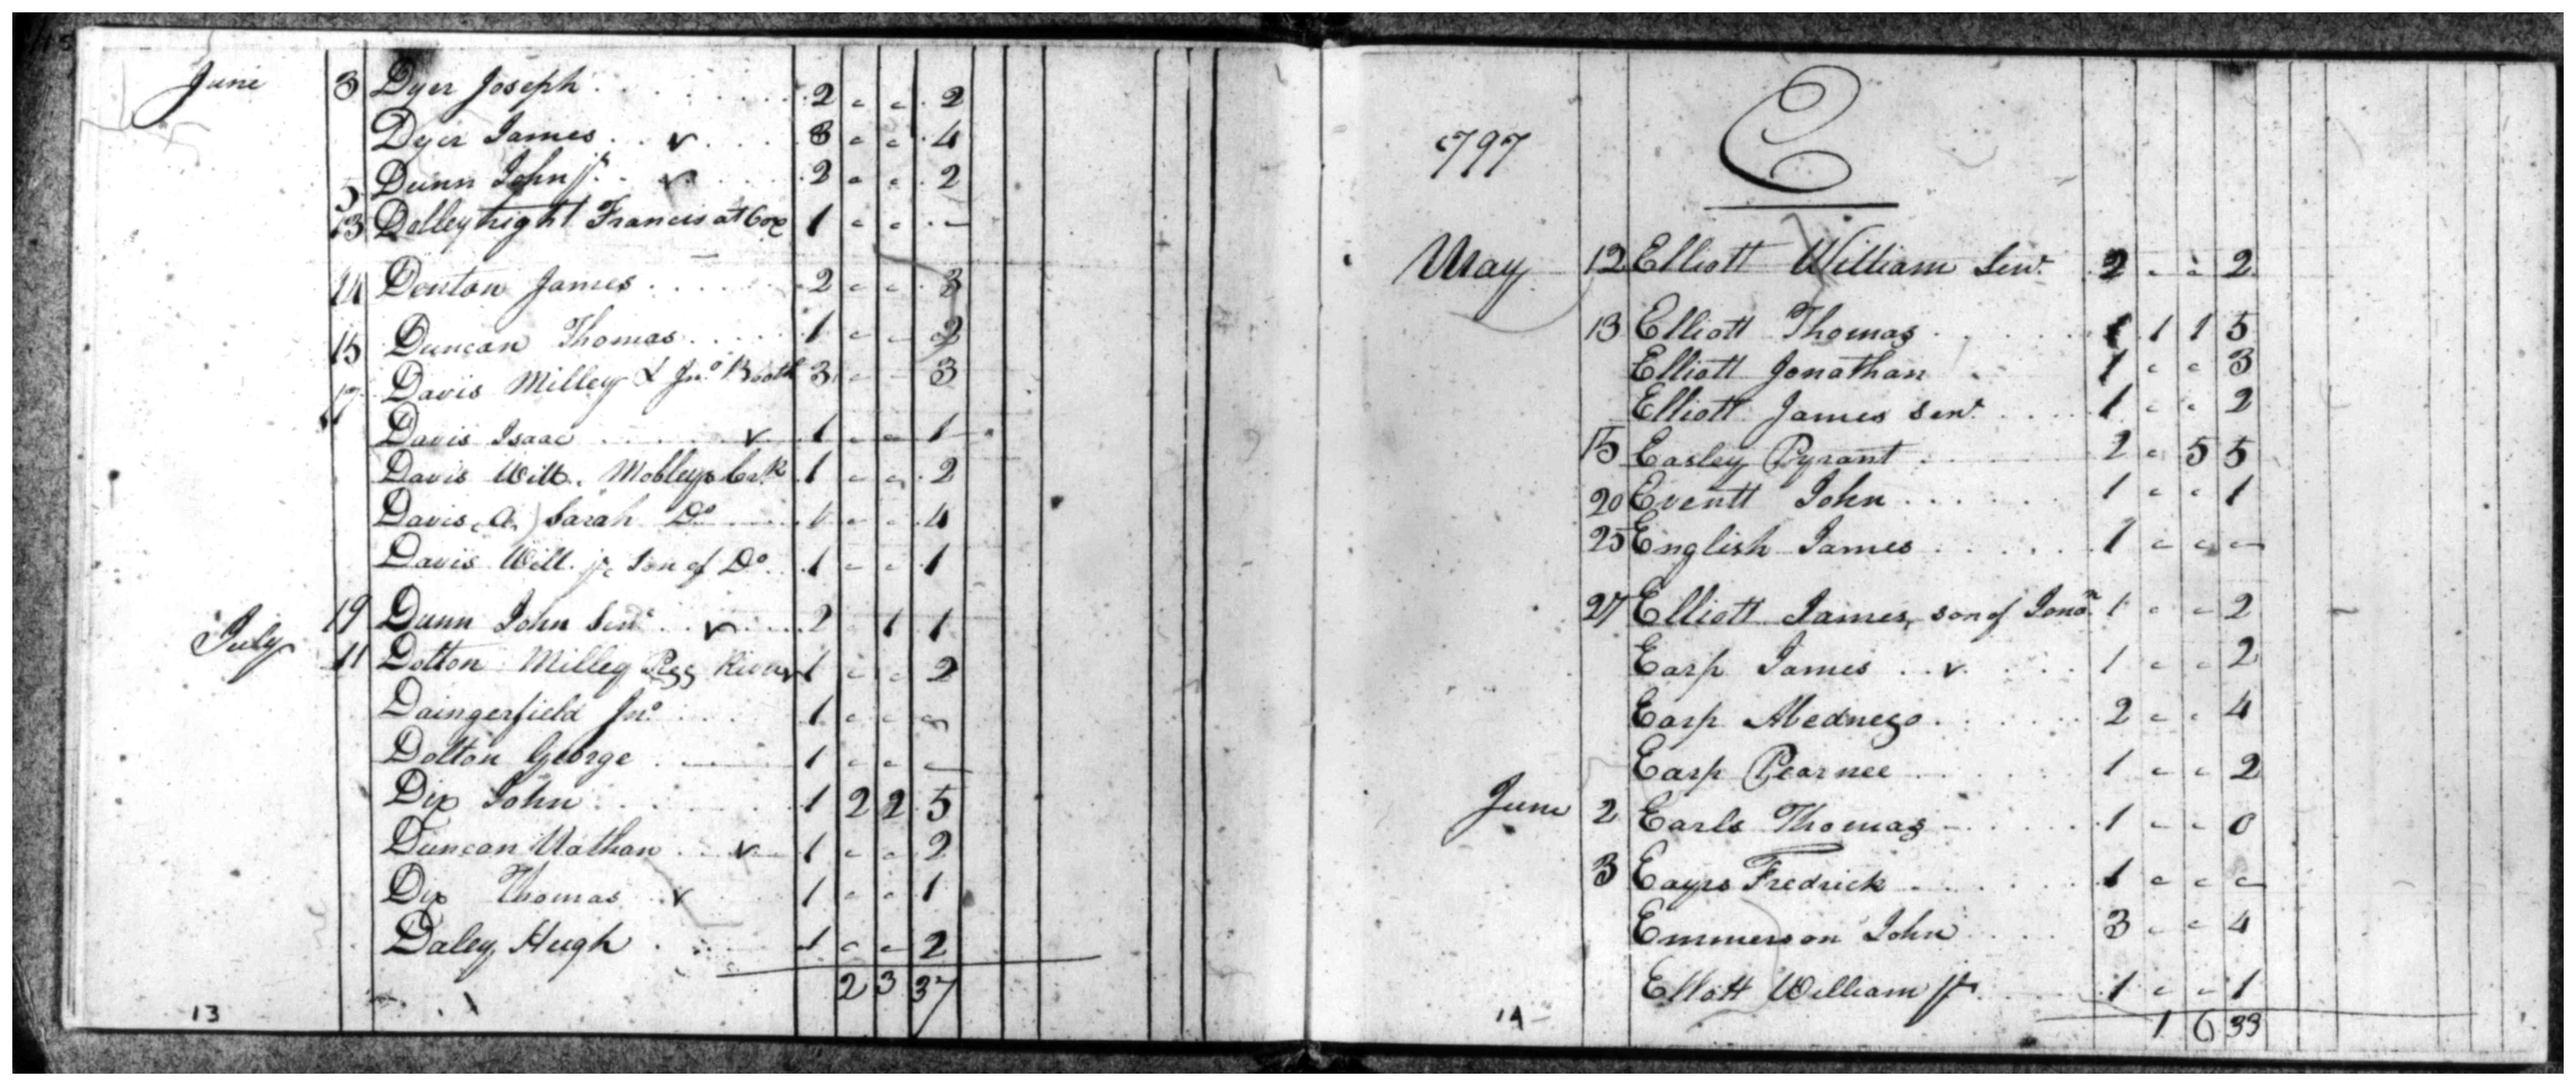 June 3 Dyer Joseph 2 - - 2
Dyer James v 3 - - 4
5 Dunn John jr. v 2 - - 2
13 Dolleyhight Francis at Cox 1 - - -
14 Denton James 2 - - 3
15 Duncan Thomas 1 - - 2
17 Davis Milley & Jno. Booth 3 - - 3
Davis Isaac v 1 - - 1
Davis Will. Mobleys Crk 1 - - 2
Davis, a, Sarah Do 1 - - 4
Davis Will. jr. son of Do 1 - - 1
19 Dunn John Senr. v 2 1 1
July 11 Dolton Milley Pigg River 1 - - 2
Daingerfield Jno. 1 - - -
Dolton George 1 - - -
Dix John 1 2 2 5
Duncan Nathan v 1 - - 2
Dix Thomas v 1 - - 1
Daley Hugh 1 - - 2
2 3 37
13
1797 E
May 12 Elliott William Senr. 2 - - 2
13 Elliott Thomas 1 1 1 5
Elliott Jonathan 1 - - 3
Elliott James Senr. 1 - - 2
15 Easley Pyrant 2 - 5 5
20 Eventt John 1 - - 1
25 English James 1 - - -
27 Elliott James, son of Jona. 1 - - 2
Earp James v 1 - - 2
Earp Abednego 2 - - 4
Earp Pearnee 1 - - 2
June 2 Earls Thomas 1 - - 0
3 Eayrs Fredrick 1 - - -
Emmerson John 3 - - 4
Ellott William jr. 1 - - 1
1 6 33
14